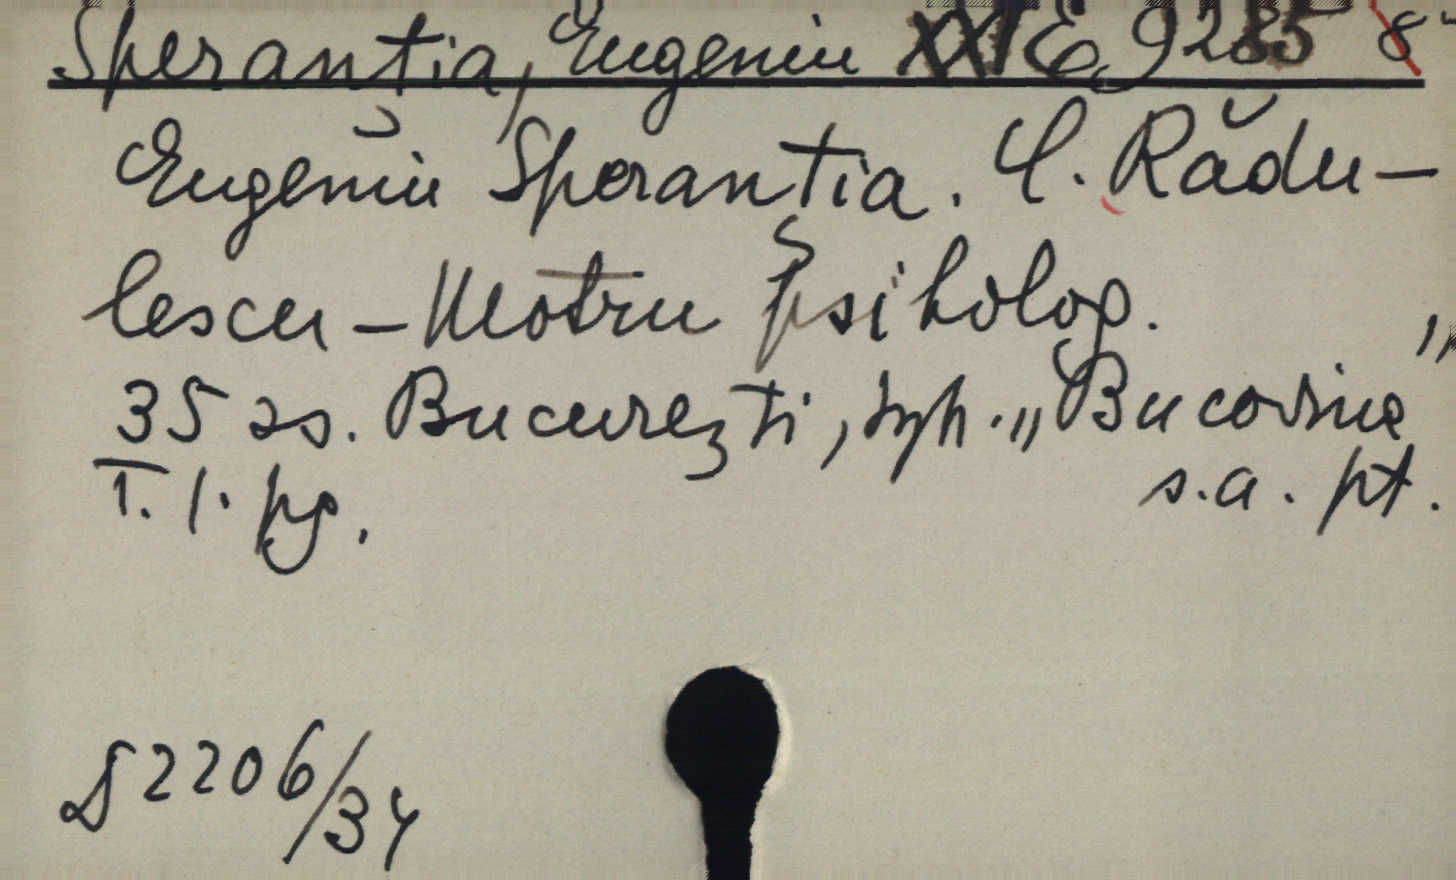 Speranția, Eugeniu XXI E 9285 8°
Eugeniu Speranția. C. Rădu-
lescu-Motru psiholog.
35 zs. București, typ. „Bucovina"
I. 1. pg. s.a. pt.
S2206/34